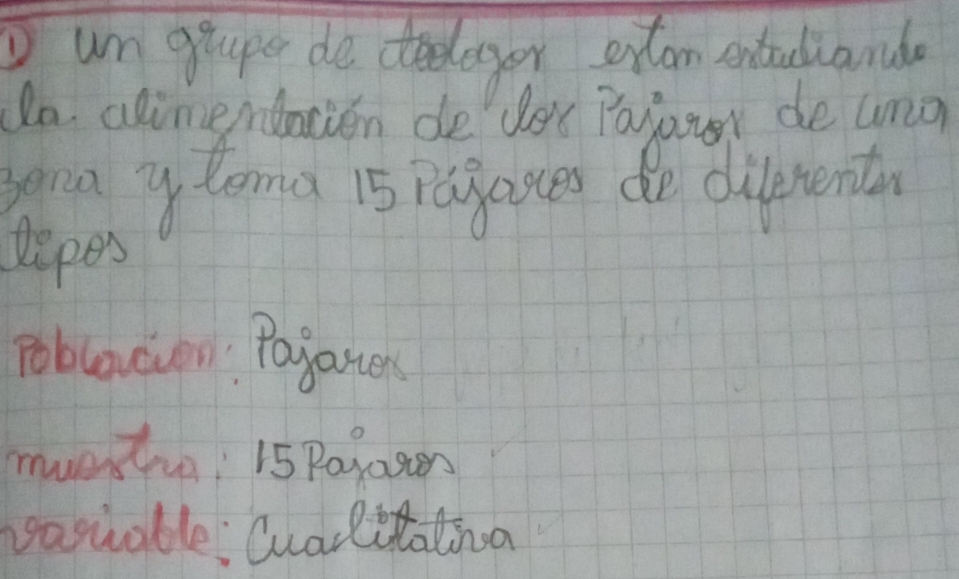 ① un grupo de estan estudiando
la alimentación de los Pajaros de una
zona y toma 15 Pájaros de diferentes
tipos
Poblacion: Pajaros
muestra: 15 Pajaros
variable: Cualitativa